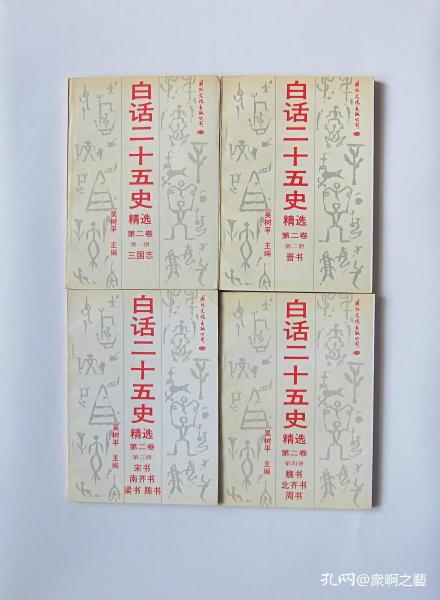 国际文化出版公司
白话二十五史
精选
第二卷
第一册
三国志
吴树平 主编
国际文化出版公司
白话二十五史
精选
第二卷
第二册
晋书
吴树平 主编
国际文化出版公司
白话二十五史
精选
第二卷
第三册
宋书
南齐书
梁书 陈书
吴树平 主编
国际文化出版公司
白话二十五史
精选
第二卷
第四册
魏书
北齐书
周书
吴树平 主编
孔网@衆啊之藝